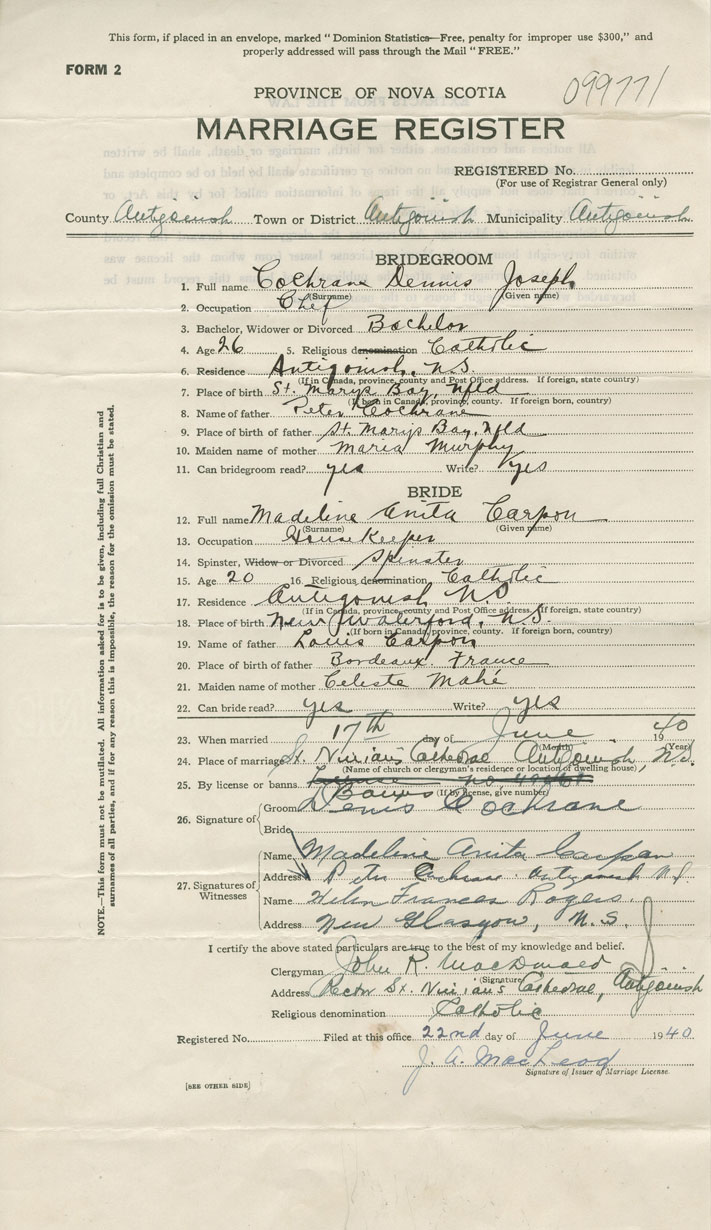 This form, if placed in an envelope, marked "Dominion Statistics—Free, penalty for improper use $300," and
properly addressed will pass through the Mail "FREE."
FORM 2
PROVINCE OF NOVA SCOTIA 099771
MARRIAGE REGISTER
REGISTERED No.
(For use of Registrar General only)
County Antigonish Town or District Antigonish Municipality Antigonish
BRIDEGROOM
1. Full name Cochrane Dennis Joseph
(Surname) (Given name)
2. Occupation Chef
3. Bachelor, Widower or Divorced Bachelor
4. Age 26 5. Religious denomination Catholic
6. Residence Antigonish, N.S.
(If in Canada, province, county and Post Office address. If foreign, state country)
7. Place of birth St. Marys Bay, Nfld
(If born in Canada, province, county. If foreign born, country)
8. Name of father Peter Cochrane
9. Place of birth of father St. Marys Bay, Nfld
10. Maiden name of mother Maria Murphy
11. Can bridegroom read? yes Write? yes
BRIDE
12. Full name Madeline Anita Carpon
(Surname) (Given name)
13. Occupation House Keeper
14. Spinster, Widow or Divorced Spinster
15. Age 20 16. Religious denomination Catholic
17. Residence Antigonish NS
(If in Canada, province, county and Post Office address. If foreign, state country)
18. Place of birth New Waterford, N.S.
(If born in Canada, province, county. If foreign born, country)
19. Name of father Louis Carpon
20. Place of birth of father Bordeaux France
21. Maiden name of mother Celeste Mahé
22. Can bride read? yes Write? yes
23. When married 17th day of June 1940
(Month) (Year)
24. Place of marriage St. Ninian's Cathedral Antigonish, N.S.
(Name of church or clergyman's residence or location of dwelling house)
25. By license or banns License no.
Banns (If by license, give number)
26. Signature of Groom Denis Cochrane
Bride
27. Signatures of Witnesses
Name Madeline Anita Carpon
Address Peter Cochrane Antigonish N.S.
Name Helen Frances Rogers
Address New Glasgow, N.S.
I certify the above stated particulars are true to the best of my knowledge and belief.
Clergyman John R. MacDonald
(Signature)
Address Rector St. Ninian's Cathedral, Antigonish
Religious denomination Catholic
Registered No. Filed at this office 22nd day of June 1940
J. A. MacLeod
Signature of Issuer of Marriage License.
[SEE OTHER SIDE]
NOTE.—This form must not be mutilated. All information asked for is to be given, including full Christian and
surnames of all parties, and if for any reason this is impossible, the reason for the omission must be stated.